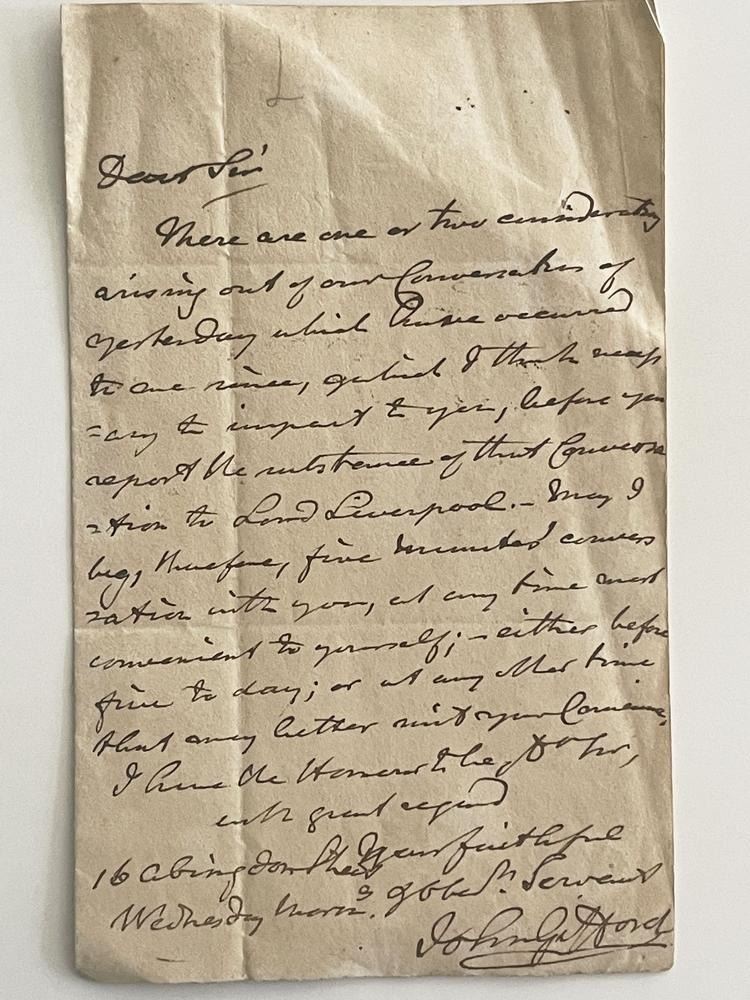 Dear Sir
There are one or two considerations
arising out of our Conversation of
yesterday which have occurred
to me since, which I think necess
=ary to impart to you, before you
report the substance of that Conversa
=tion to Lord Liverpool. – May I
beg, therefore, five minutes' convers
=ation with you, at any time most
convenient to yourself; – either before
five to day; or at any other time
that may better suit your Convenience,
I have the Honour to be, Dr Sir,
with great regard
Your faithful
16 Abingdon Street
& Obedt. Servant
Wednesday Morng.
John Gifford